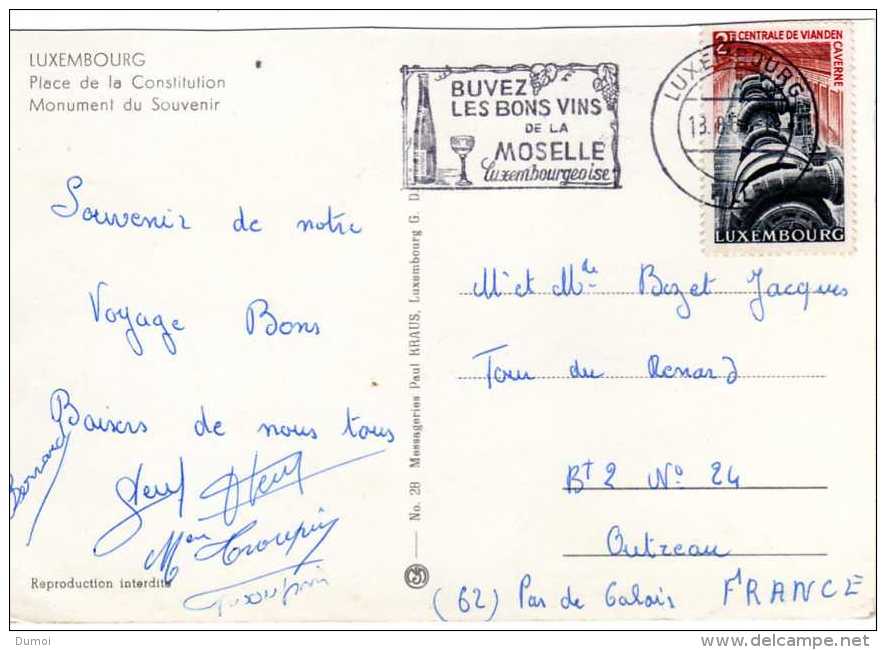 LUXEMBOURG
Place de la Constitution
Monument du Souvenir
BUVEZ
LES BONS VINS
DE LA
MOSELLE
luxembourgeoise
LUXEMBOURG
2F CENTRALE DE VIANDEN
CAVERNE
LUXEMBOURG
Souvenir de notre
Voyage Bons
Baisers de nous tous
Bernard
Reproduction interdite
No. 28 Messageries Paul KRAUS, Luxembourg G. D.
Mr et Mde Bozet Jacques
Tour du Renard
Bt 2 No 24
Outreau
(62) Pas de Calais FRANCE
Dumoi
delcampe.net